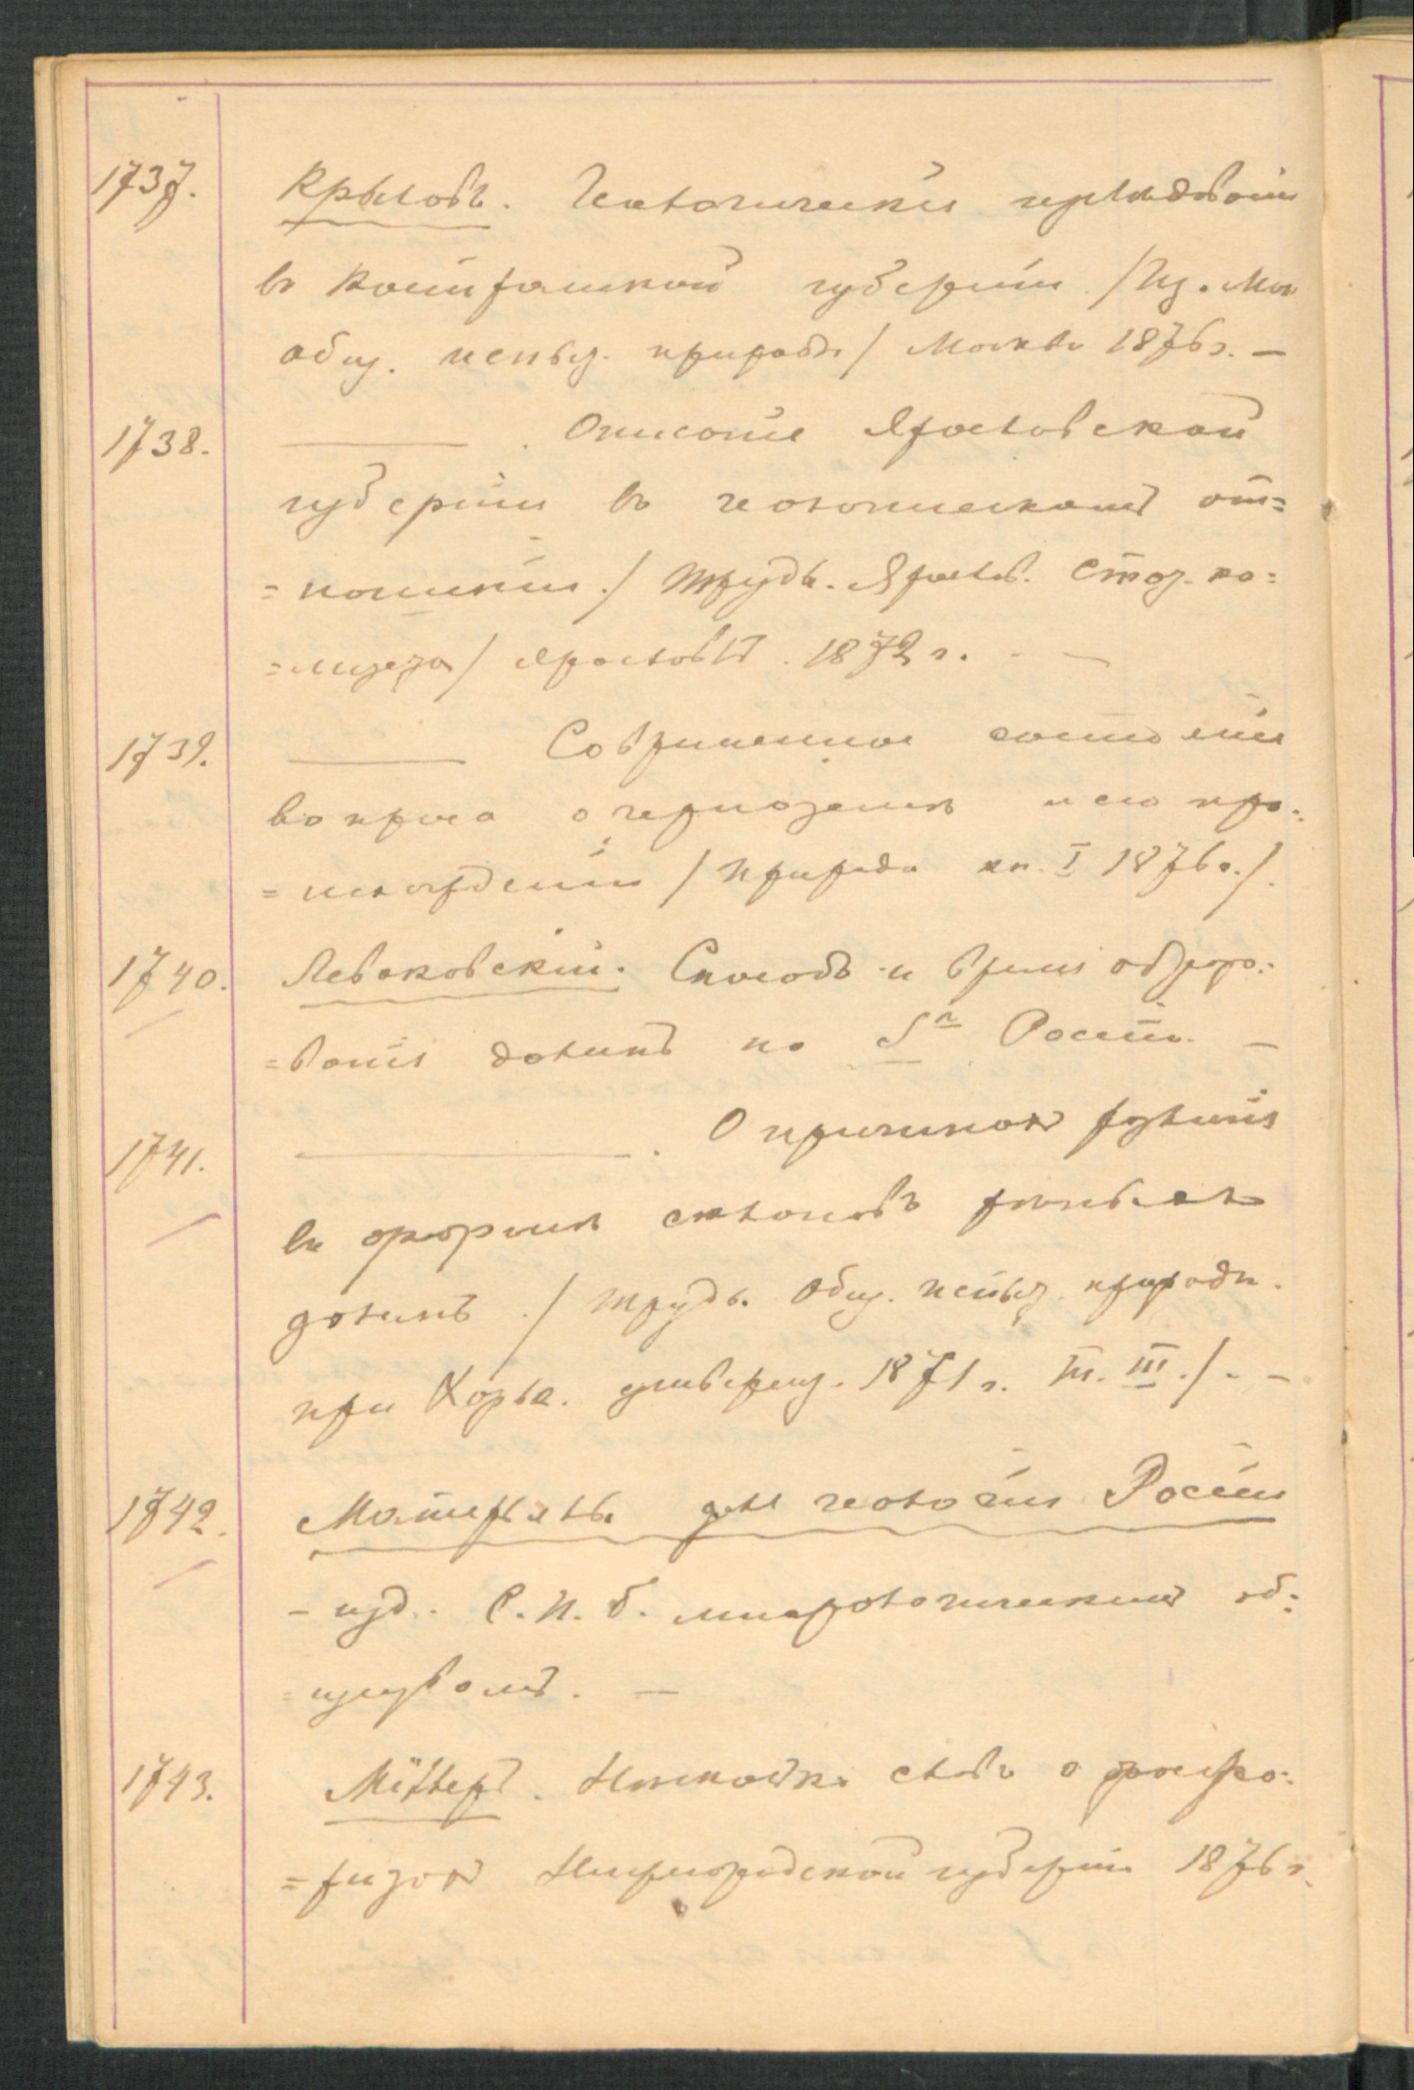 1737. Крыловъ. Геологическія изслѣдованія
въ Костромской губерніи. / Из. Мос
общ. испыт. природы / Москва 1876 г. —
1738. ——— . Описаніе Ярославской
губерніи въ геологическомъ от=
=ношеніи. / Труды. Яросл. Стат. ко=
=митета / Ярославль. 1872 г. —
1739. ——— Современное состояніе
вопроса о черноземѣ и его про=
=исхожденіи / Природа кн. I 1876 г. /.
1740. Леваковскій. Способъ и время образо=
=ванія долинъ на Ю. Россіи. —
1741. ——— . О причинахъ различія
въ формѣ склоновъ рѣчныхъ
долинъ. / Труды. Общ. испыт. природы.
при Харьк. университ. 1871 г. т. III. /. —
1742. Матерьялы для геологіи Россіи
— изд. С. П. б. минералогическимъ об=
=ществомъ. —
1743. Мёллеръ. Нѣсколько словъ о фосфо=
=ритахъ Нижегородской губерніи 1876 г.